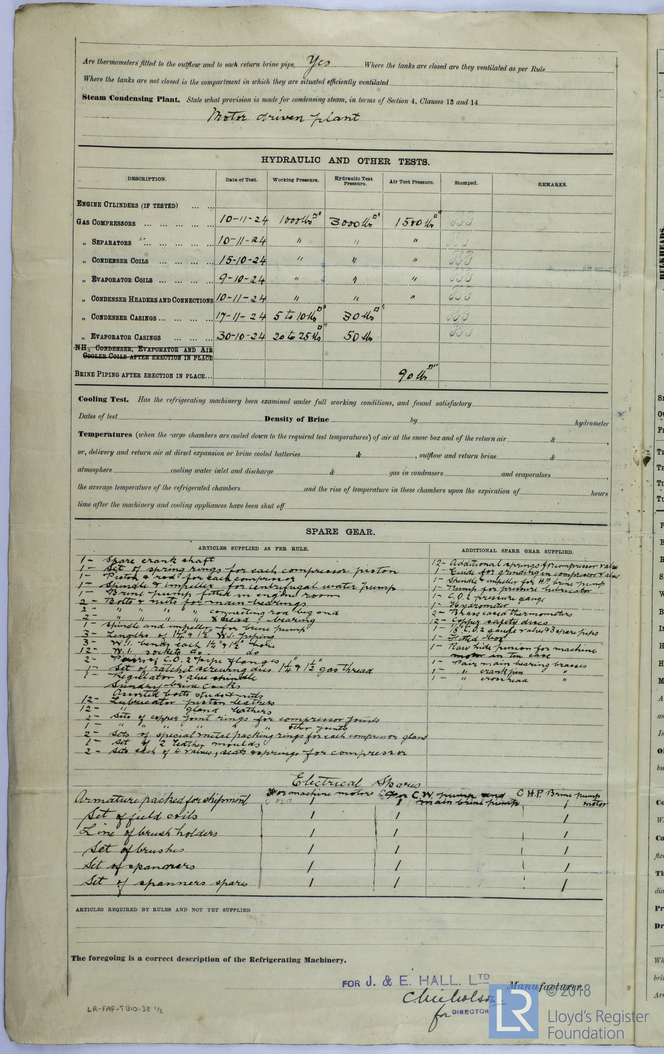 Are thermometers fitted to the outflow and to each return brine pipe, Yes Where the tanks are closed are they ventilated as per Rule
Where the tanks are not closed is the compartment in which they are situated efficiently ventilated
Steam Condensing Plant. State what provision is made for condensing steam, in terms of Section 4, Clauses 13 and 14
Motor driven plant
HYDRAULIC AND OTHER TESTS.
DESCRIPTION. Date of Test. Working Pressure. Hydraulic Test Pressure. Air Test Pressure. Stamped. REMARKS.
ENGINE CYLINDERS (IF TESTED)
GAS COMPRESSORS 10-11-24 1000 lbs□" 3000 lbs□" 1500 lbs□"
" SEPARATORS 10-11-24 " " "
" CONDENSER COILS 15-10-24 " " "
" EVAPORATOR COILS 9-10-24 " " "
" CONDENSER HEADERS AND CONNECTIONS 10-11-24 " " "
" CONDENSER CASINGS 17-11-24 5 to 10 lbs□" 30 lbs□"
" EVAPORATOR CASINGS 30-10-24 20 to 25 lbs□" 50 lbs
NH3 CONDENSER, EVAPORATOR AND AIR
COOLER COILS AFTER ERECTION IN PLACE
BRINE PIPING AFTER ERECTION IN PLACE 90 lbs□"
Cooling Test. Has the refrigerating machinery been examined under full working conditions, and found satisfactory
Dates of test Density of Brine by hydrometer
Temperatures (when the cargo chambers are cooled down to the required test temperatures) of air at the snow box and of the return air &
or, delivery and return air at direct expansion or brine cooled batteries &, outflow and return brine &
atmosphere cooling water inlet and discharge & gas in condensers and evaporators,
the average temperature of the refrigerated chambers and the rise of temperature in these chambers upon the expiration of hours
time after the machinery and cooling appliances have been shut off
SPARE GEAR.
ARTICLES SUPPLIED AS PER RULE. ADDITIONAL SPARE GEAR SUPPLIED.
1- Spare crank shaft
1- Set of spring rings for each compressor piston
1- Piston & rod for each compressor
1- Spindle & impeller for centrifugal water pump
1- Brine pump fitted in engine room
2- Bolts & nuts for main bearings
2- " " " " connecting rod big end
2- " " " " bearing
1- Spindle and impeller for brine pump
3- Lengths of 1¼" & 1½" W.I. piping
3- W.I. bends each 1¼" & 1½"
12- W.I. sockets do. do
2- Pairs of C.O.2 pipe flanges
1- Set of ratchet screwing dies 1¼" & 1½" gas thread
1- Regulator valve spindle
Sundry brine cocks
Assorted bolts studs & nuts
12- Lubricator piston leathers
12- " gland leathers
2- Sets of copper joint rings for compressor joints
1- " " " " " " other joints
2- Sets of special metal packing rings for each compressor gland
1- Set of 2 leather moulds
2- Sets each of 4 valves, seats & springs for compressor
12- Additional springs for compressor valves
1- Guide for grinding in compressor valves
1- Spindle & impeller for H.P. brine pump
1- Pump for pressure lubricator
1- C.O.2 pressure gauge
1- Hydrometer
2- Brass cased thermometers
12- Copper safety discs
1- Raw hide pinion for machine
motor in tin case
1- Pair main bearing brasses
1- " crank pin "
1- " crosshead "
Electrical Spares
For machine motor For C.W. pump and main brine pump C H.P. Brine pump motor
Armature packed for shipment 1 1 1
Set of field coils 1 1 1
Line of brush holders 1 1 1
Set of brushes 1 1 1
Set of 1 1 1
Set of spanners spare 1 1 1
ARTICLES REQUIRED BY RULES AND NOT YET SUPPLIED
The foregoing is a correct description of the Refrigerating Machinery.
FOR J. & E. HALL, LTD Manufacturer.
C Nicholson
for DIRECTOR
LR-FAF-7B10-38 1/2
LR © 2018
Lloyd's Register
Foundation